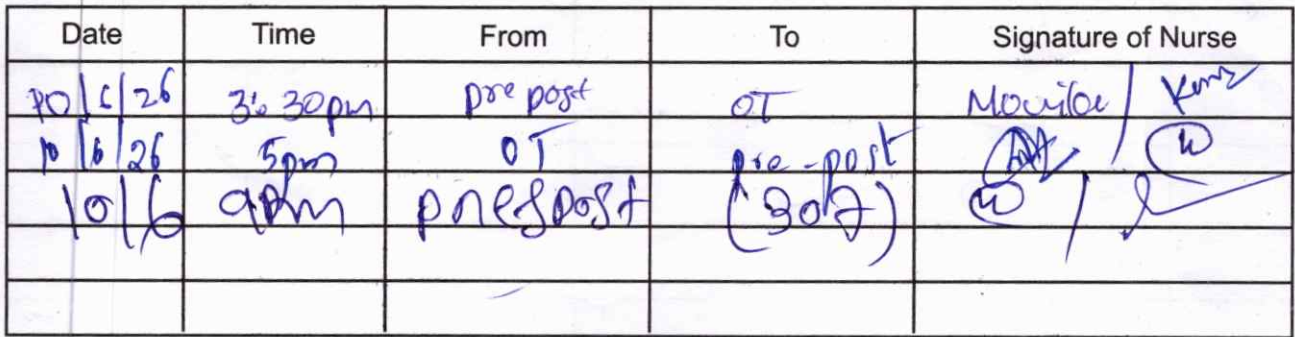 Date Time From To Signature of Nurse
10/6/26 3:30pm pre post OT
10/6/26 5pm OT pre-post
10/6 9pm pre&post (307)